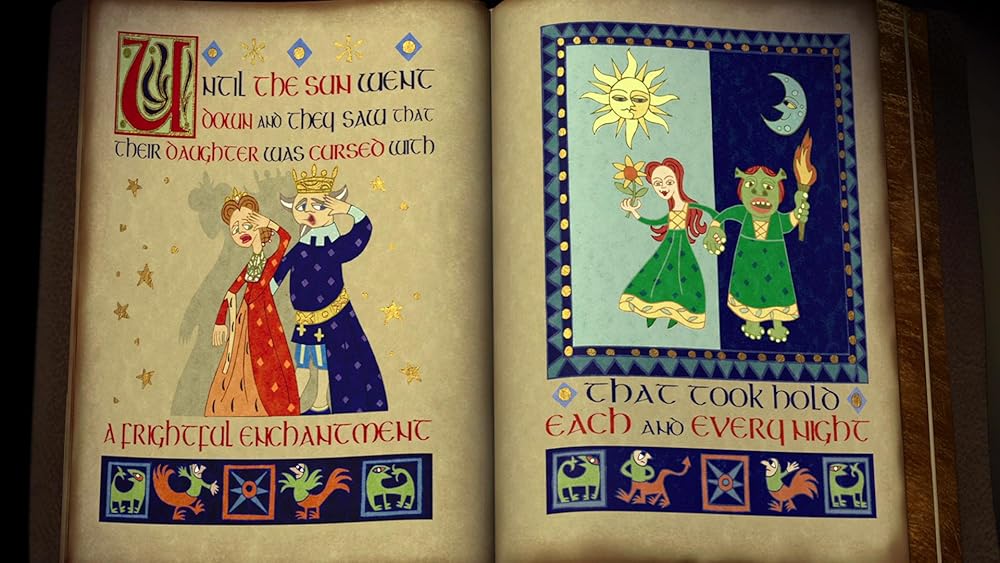 Until the sun went
down and they saw that
their daughter was cursed with
a frightful enchantment
that took hold
each and every night